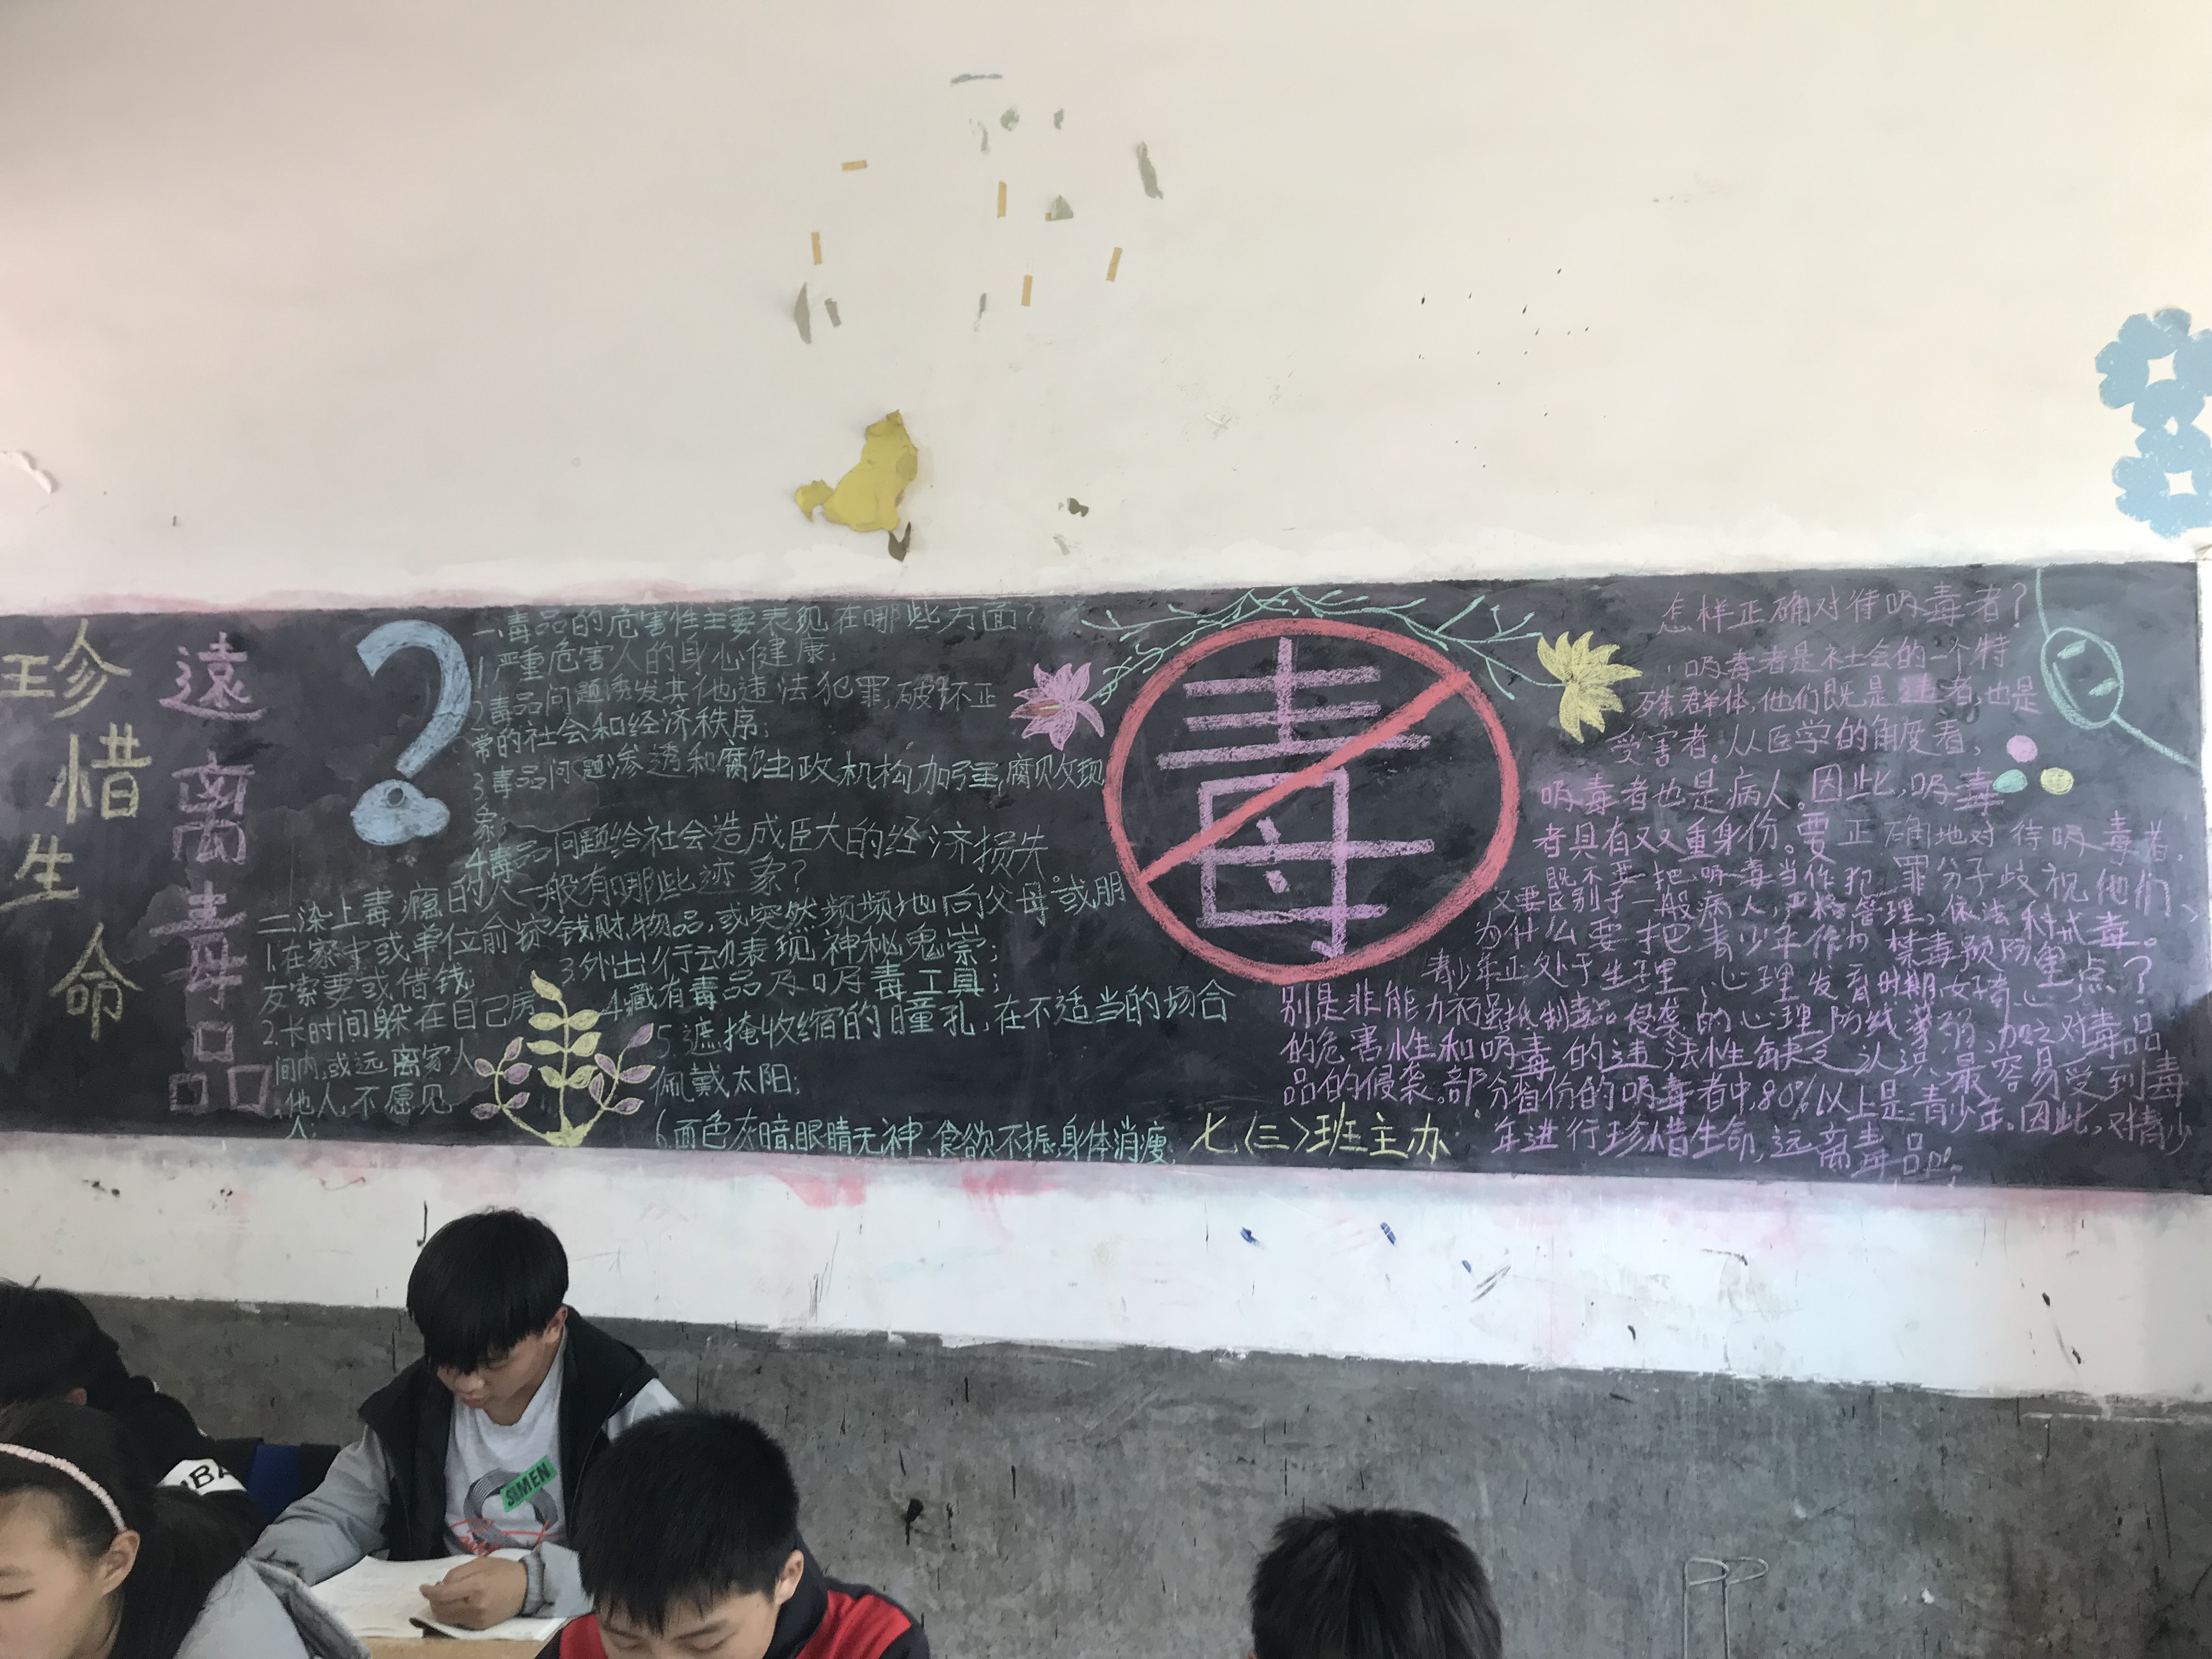 珍惜生命
遠离毒品
一、毒品的危害性主要表现在哪些方面?
1.严重危害人的身心健康;
2.毒品问题诱发其他违法犯罪,破坏正
常的社会和经济秩序;
3.毒品问题渗透和腐蚀政机构,加强,腐败现
象;
4.毒品问题给社会造成巨大的经济损失。
二、染上毒瘾的人一般有哪些迹象?
1.在家中或单位偷窃钱财、物品,或突然频频地向父母或朋
友索要或借钱;
2.长时间躲在自己房
间内,或远离家人
、他人,不愿见
人;
3.外出行动表现神秘鬼祟;
4.藏有毒品及吸毒工具;
5.遮掩收缩的瞳孔,在不适当的场合
佩戴太阳;
6.面色灰暗、眼睛无神、食欲不振,身体消瘦;
毒
七(三)班主办
怎样正确对待吸毒者?
吸毒者是社会的一个特
殊群体,他们既是 者,也是
受害者。从医学的角度看,
吸毒者也是病人。因此,吸毒
者具有双重身份。要正确地对待吸毒者,
既不要把吸毒当作犯罪分子歧视他们、
又要区别于一般病人,严格管理,依法科戒毒。
为什么要把青少年作为禁毒预防重点?
青少年正处于生理、心理发育时期,好奇心
别是非能力不强,抵制毒品侵袭的心理防线薄弱,加之对毒品
的危害性和吸毒的违法性缺乏认识,最容易受到毒
品的侵袭。部分省份的吸毒者中,80%以上是青少年。因此,对青少
年进行珍惜生命,远离毒品!;
SIMEN